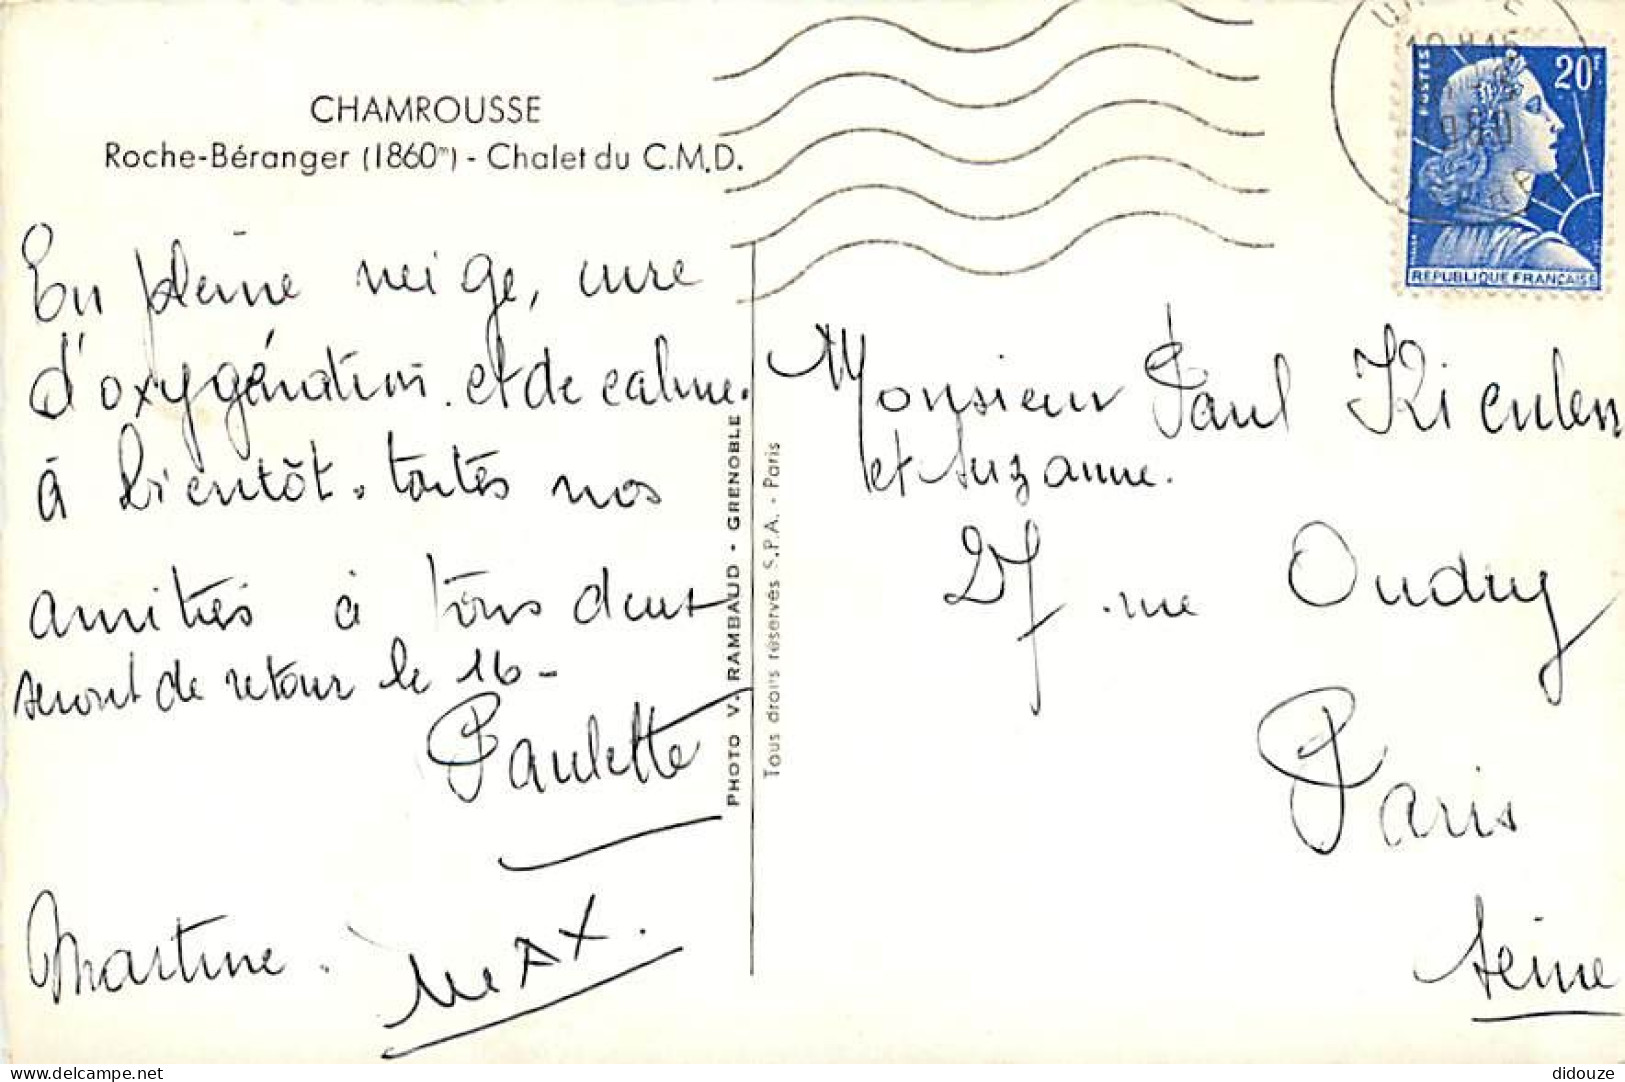 CHAMROUSSE
Roche-Béranger (1860m) - Chalet du C.M.D.
En pleine neige, cure
d'oxygénation et de calme.
à bientôt. toutes nos
amitiés à tous deux
seront de retour le 16-
Paulette
Martine.
MAX.
PHOTO V. RAMBAUD - GRENOBLE
Tous droits réservés S.P.A. - Paris
10 H 15
1960
POSTES
20F
REPUBLIQUE FRANÇAISE
Monsieur Paul
et Suzanne.
27 rue Oudry
Paris
Seine
delcampe.net
didouze